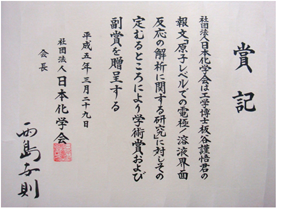 賞記
社団法人日本化学会は工学博士板谷謹悟君の
報文「原子レベルでの電極/溶液界面
反応の解析に関する研究」に対しその
定むるところにより学術賞および
副賞を贈呈する
平成五年三月二十九日
社団法人 日本化学会
会長 西島安則